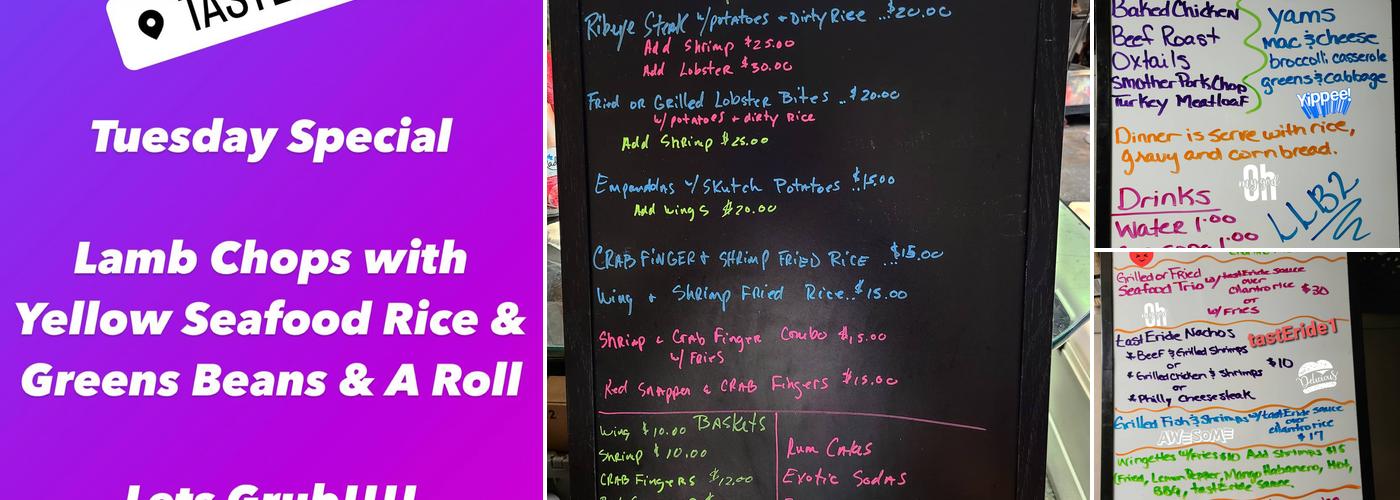 Tuesday Special
Lamb Chops with
Yellow Seafood Rice &
Greens Beans & A Roll
Lets Grub!!!!
Ribeye Steak w/potatoes + Dirty Rice ...$20.00
Add Shrimp $25.00
Add Lobster $30.00
Fried or Grilled Lobster Bites ..$20.00
w/potatoes + dirty Rice
Add Shrimp $25.00
Empanadas w/Skutch Potatoes ..$15.00
Add wings $20.00
CRAB FINGER & SHRIMP FRIED RICE ...$15.00
Wing & Shrimp Fried Rice..$15.00
Shrimp & Crab Finger Combo $15.00
w/ FRIES
Red Snapper & CRAB Fingers $15.00
BASkets
Wing $10.00
Shrimp $10.00
CRAB FingeRS $12.00
Rum Cakes
Exotic Sodas
Baked Chicken
Beef Roast
Oxtails
Smother Pork Chop
Turkey Meatloaf
Yams
Mac & Cheese
broccoli casserole
greens & cabbage
Yippee!
Dinner is serve with rice,
gravy and cornbread.
Oh
my god
Drinks
Water 1.00
1.00
LLB2
Grilled or Fried
Seafood Trio w/tastEride sauce
over
cilantro rice $30
or
w/ Fries
Oh
tastEride Nachos
tastEride1
* Beef & Grilled Shrimps
or
* Grilled Chicken & Shrimps $10
or
* Philly Cheesesteak
Delicious
Grilled Fish & Shrimps w/tastEride sauce
over
cilantro rice
$17
AWESOME
Wingettes w/Fries $10 Add Shrimps $15
(Fried, Lemon Pepper, Mango Habanero, Hot,
BBQ, tastEride sauce